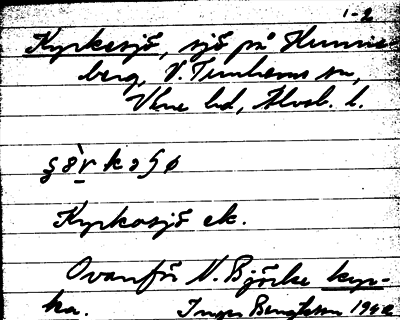 1-2
Kyrkesjö, sjö på Hunne-
berg, V. Tunhems sn,
Väne hd, Älvsb. l.
Kyrkasjö ek.
Ovanför N. Björke kyr-
ka. Inger Bengtsson